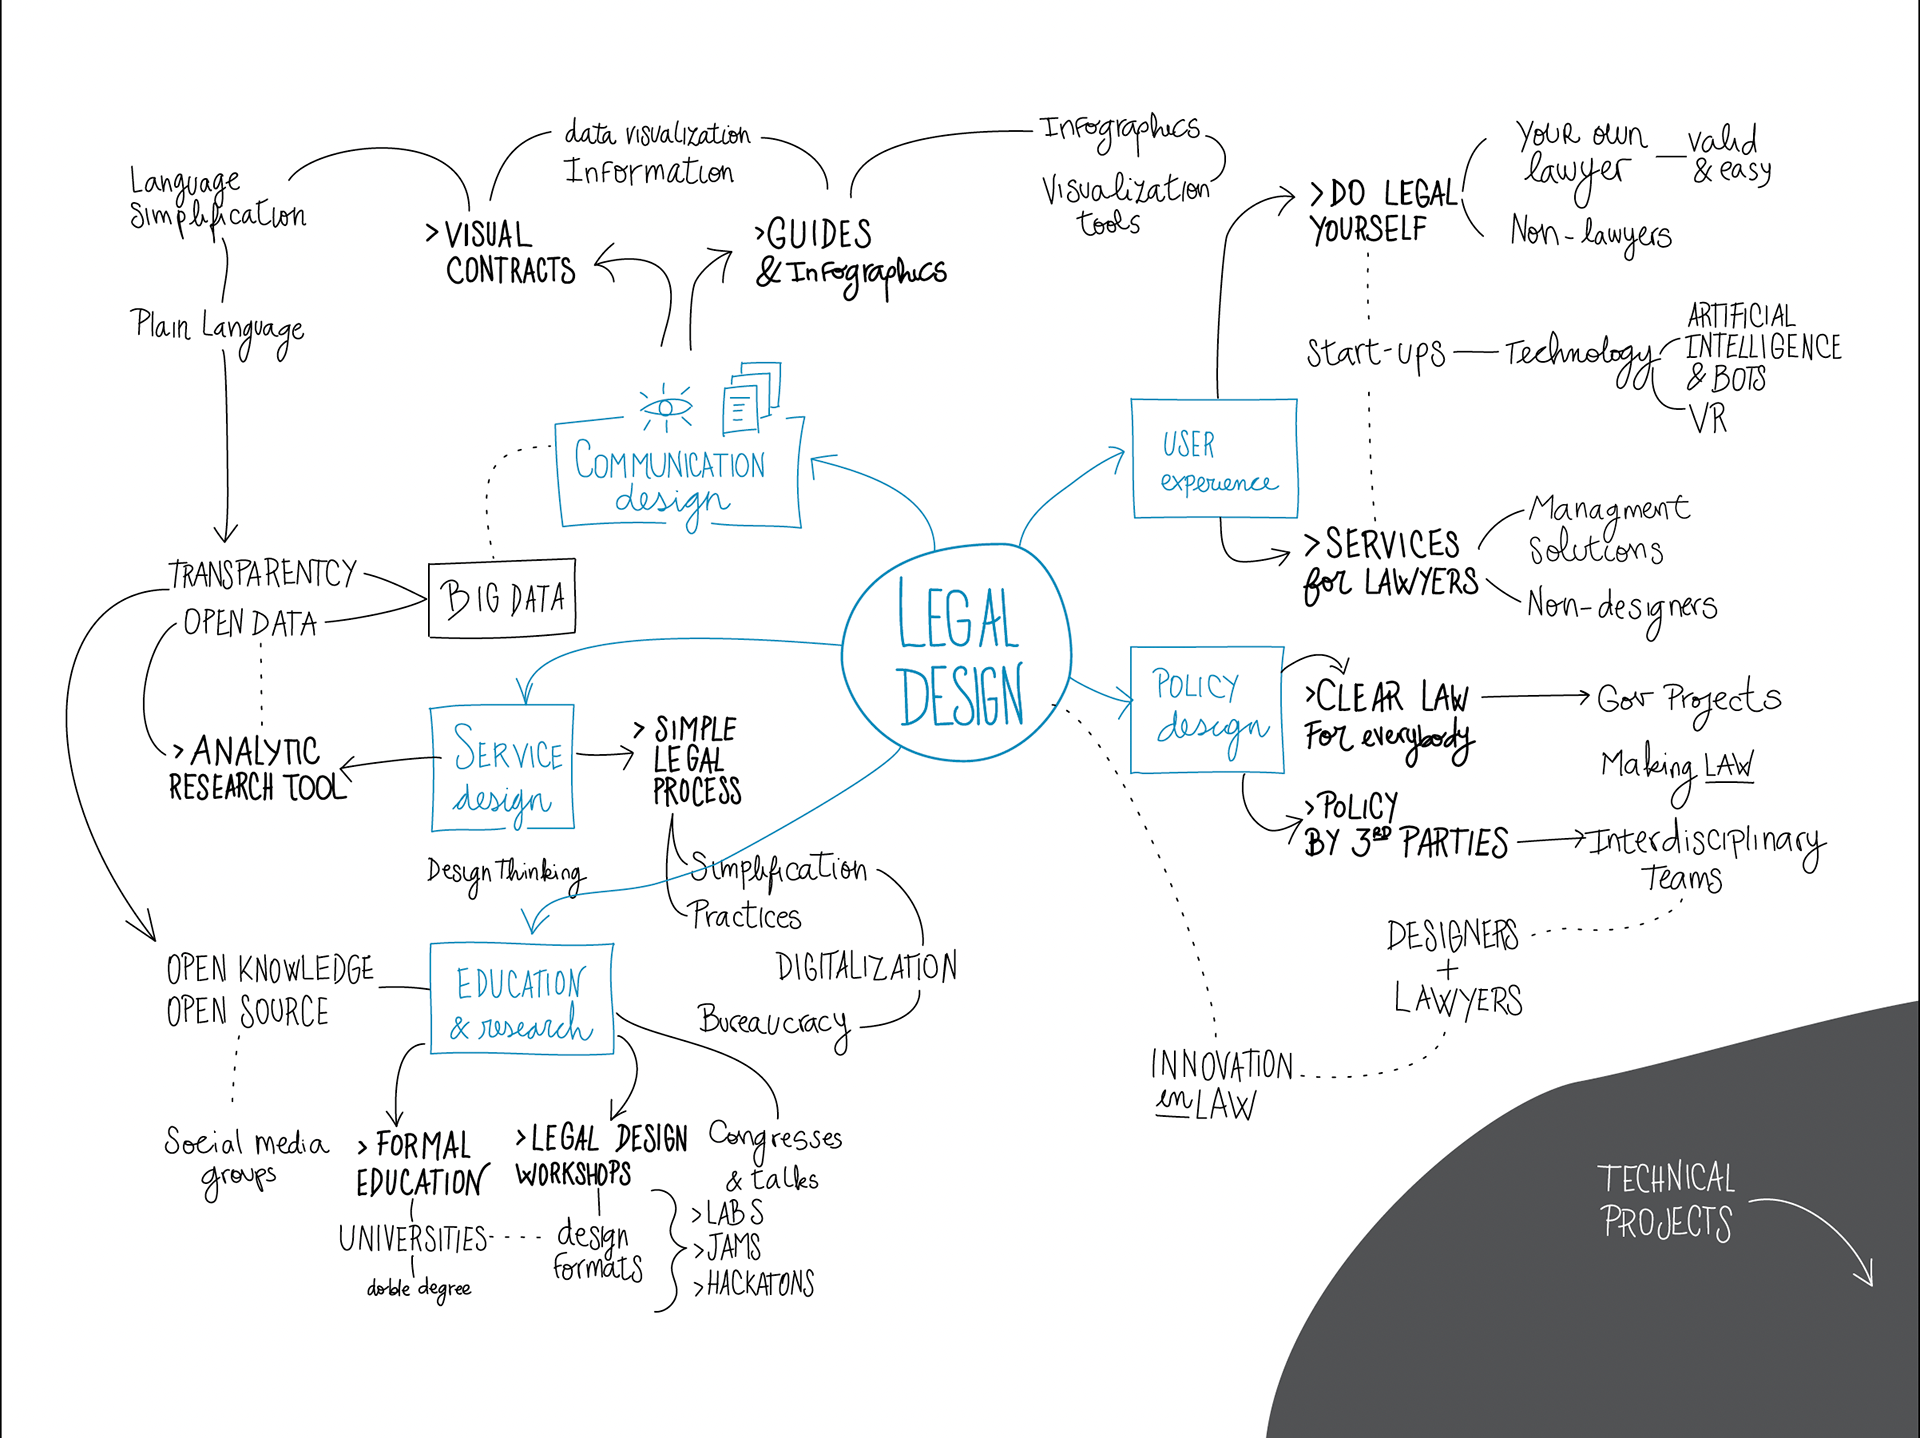 Language
Simplification
Plain Language
data visualization
Information
> VISUAL
CONTRACTS
> GUIDES
& Infographics
Infographics
Visualization
tools
COMMUNICATION
design
BIG DATA
TRANSPARENTCY
OPEN DATA
> ANALYTIC
RESEARCH TOOL
SERVICE
design
Design Thinking
> SIMPLE
LEGAL
PROCESS
Simplification
Practices
DIGITALIZATION
Bureaucracy
OPEN KNOWLEDGE
OPEN SOURCE
Social media
groups
EDUCATION
& research
> FORMAL
EDUCATION
UNIVERSITIES
doble degree
> LEGAL DESIGN
WORKSHOPS
design
formats
Congresses
& talks
> LABS
> JAMS
> HACKATONS
LEGAL
DESIGN
USER
experience
> DO LEGAL
YOURSELF
YOUR OWN
lawyer
valid
& easy
Non-lawyers
Start-ups
Technology
ARTIFICIAL
INTELLIGENCE
& BOTS
VR
> SERVICES
for LAWYERS
Managment
Solutions
Non-designers
POLICY
design
> CLEAR LAW
For everybody
Gov Projects
Making LAW
> POLICY
BY 3RD PARTIES
Interdisciplinary
Teams
DESIGNERS
+
LAWYERS
INNOVATION
en LAW
TECHNICAL
PROJECTS